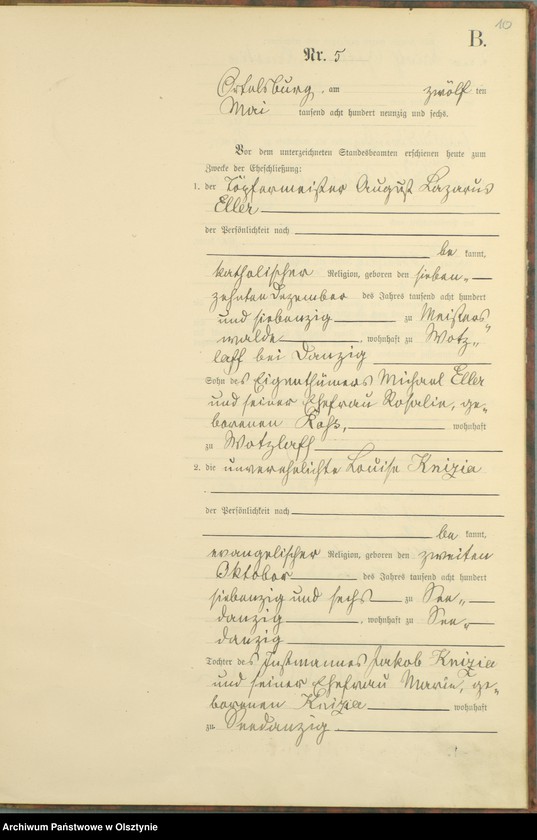 10
B.
Nr. 5
Ortelsburg, am zwölf ten
Mai tausend acht hundert neunzig und sechs.
Vor dem unterzeichneten Standesbeamten erschienen heute zum
Zwecke der Eheschließung:
1. der Töpfermeister August Lazarus
Eller
der Persönlichkeit nach
be kannt,
katholischer Religion, geboren den sieben-
zehnten Dezember des Jahres tausend acht hundert
und siebenzig zu Meisters-
walde, wohnhaft zu Wotz-
laff bei Danzig
Sohn des Eigenthümers Michael Eller
und seiner Ehefrau Rosalie, ge-
borenen wohnhaft
zu Wotzlaff
2. die unverehelichte Louise Knizia
der Persönlichkeit nach
be kannt,
evangelischer Religion, geboren den zweiten
Oktober des Jahres tausend acht hundert
siebenzig und sechs zu See-
danzig, wohnhaft zu See-
danzig
Tochter des Instmannes Jakob Knizia
und seiner Ehefrau Marie, ge-
borenen Knizia wohnhaft
zu Seedanzig
Archiwum Państwowe w Olsztynie